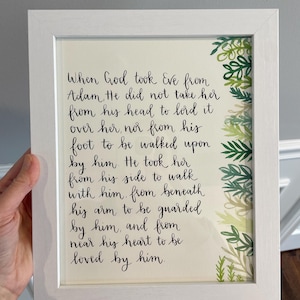 When God took Eve from
Adam, He did not take her
from his head to lord it
over her, nor from his
foot to be walked upon
by him. He took her
from his side to walk
with him, from beneath
his arm to be guarded
by him, and from
near his heart to be
loved by him.